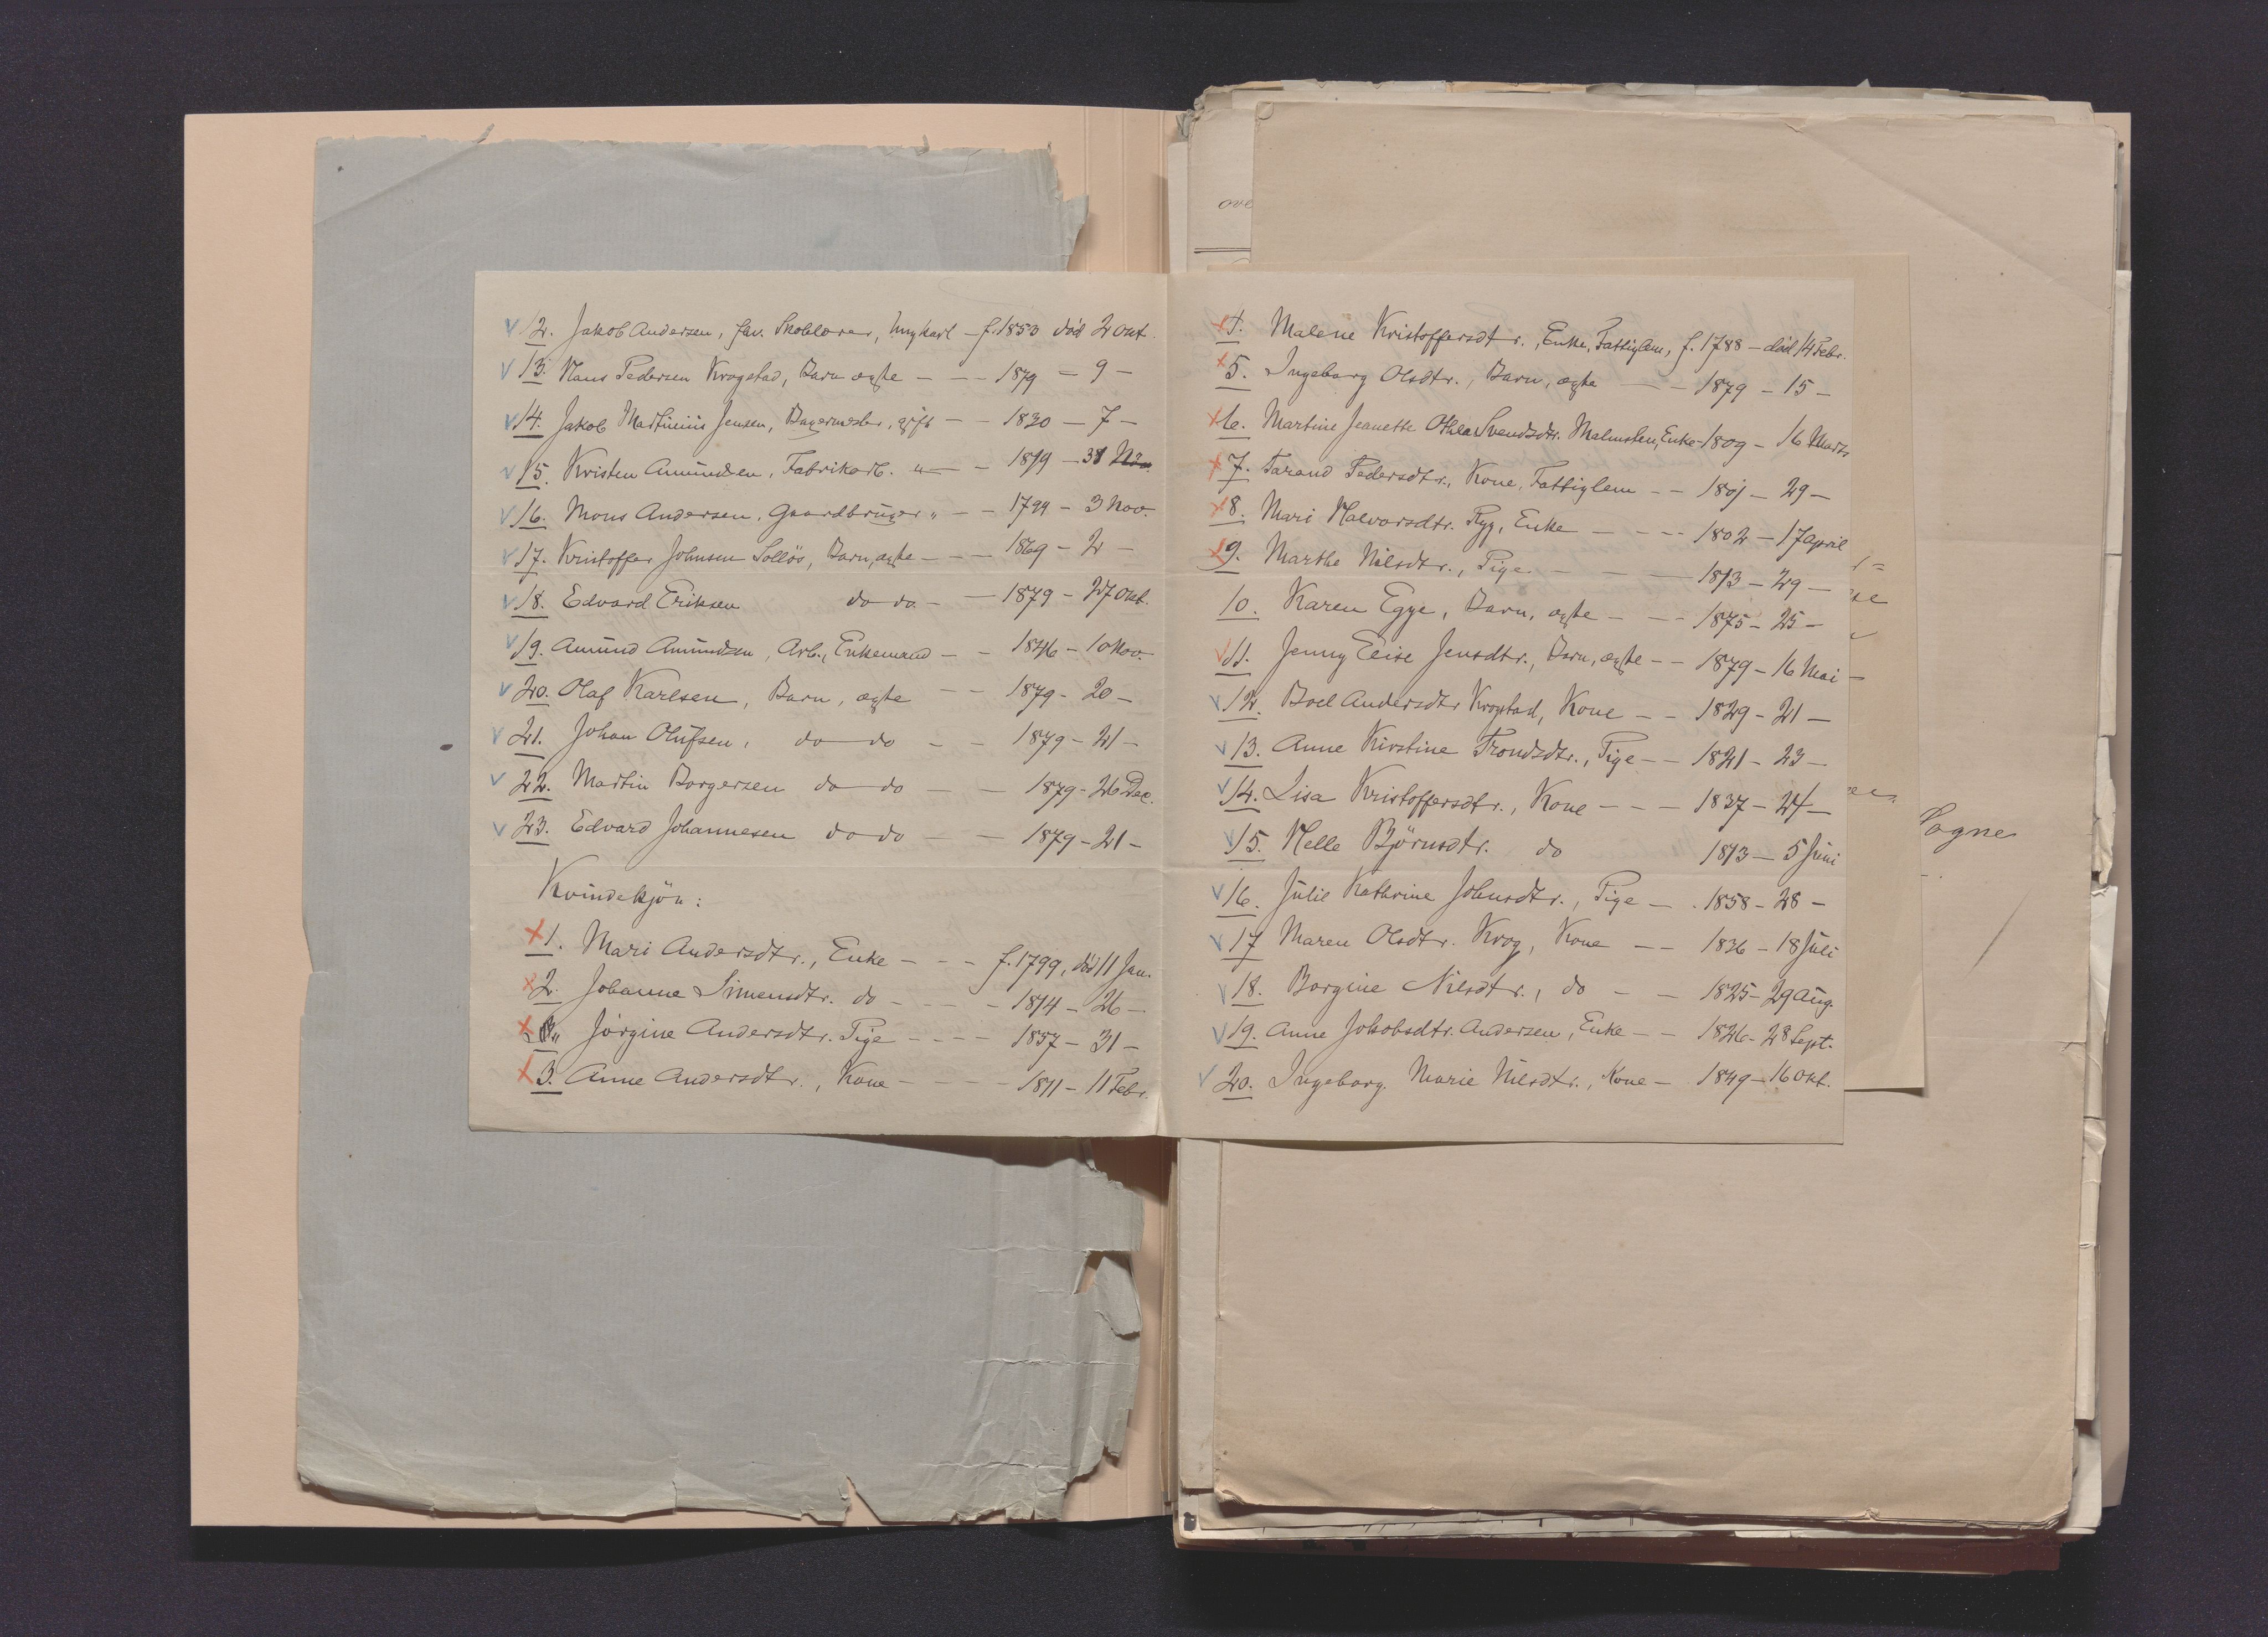 12. Jakob Andersen, fav. Skolelærer, Ungkarl – f. 1853 död 2 Okt.
13. Hans Pedersen Krogstad, Barn ægte – – – 1879 – 9 –
14. Jakob Martinius Jensen, Bagermester, gift – – 1830 – 7 –
15. Kristen Amundsen, Fabrikarb. " – – 1819 – 31
16. Mons Andersen, Gaardbruger " – – 1799 – 3 Nov.
17. Kristoffer Johnsen Sollös, Barn, ægte – – – 1869 – 2 –
18. Edvard Eriksen do do – – 1879 – 27 Okt.
19. Amund Amundsen, Arb., Enkemand – – 1846 – 10 Nov.
20. Olaf Karlsen, Barn, ægte – – 1879 – 20 –
21. Johan Olufsen, do do – – 1879 – 21 –
22. Martin Borgersen do do – – 1879 – 26 Dec.
23. Edvard Johannesen do do – – 1879 – 21 –
Kvindekjön:
1. Mari Andersdtr., Enke – – – f. 1799, död 11 Jan.
2. Johanne Simensdtr. do – – – – 1814 – 26 –
Jörgine Andersdtr. Pige – – – – 1857 – 31 –
3. Anne Andersdtr., Kone – – – – 1811 – 11 Febr.
4. Malene Kristoffersdtr., Enke, Fattiglem, f. 1788 – död 14 Febr.
5. Ingeborg Olsdtr., Barn, ægte – – 1879 – 15 –
6. Martine Jeanette Othea Svendsdtr. Malmsten, Enke – 1809 – 16 Marts
7. Tarand Pedersdtr., Kone, Fattiglem – – 1801 – 29 –
8. Mari Halvorsdtr. Ryg, Enke – – – – 1802 – 17 April
9. Marthe Nilsdtr., Pige – – – 1813 – 29 –
10. Karen Egge, Barn, ægte – – – 1875 – 25 –
11. Jenny Elise Jensdtr., Barn, ægte – – 1879 – 16 Mai –
12. Boel Andersdtr Krogstad, Kone – – 1829 – 21 –
13. Anne Kirstine Trondsdtr., Pige – – 1821 – 23 –
14. Lisa Kristoffersdtr., Kone – – – 1837 – 24 –
15. Helle Björnsdtr. do 1813 – 5 Juni
16. Julie Kathrine Johnsdtr., Pige – . 1858 – 28 –
17 Maren Olsdtr. Krog, Kone – – 1836 – 18 Juli
18. Borgine Nilsdtr., do – – 1825 – 29 Aug.
19. Anne Jakobsdtr. Andersen, Enke – – 1826 – 28 Sept.
20. Ingeborg Marie Nilsdtr., Kone – 1849 – 16 Okt.
ove
Sogne